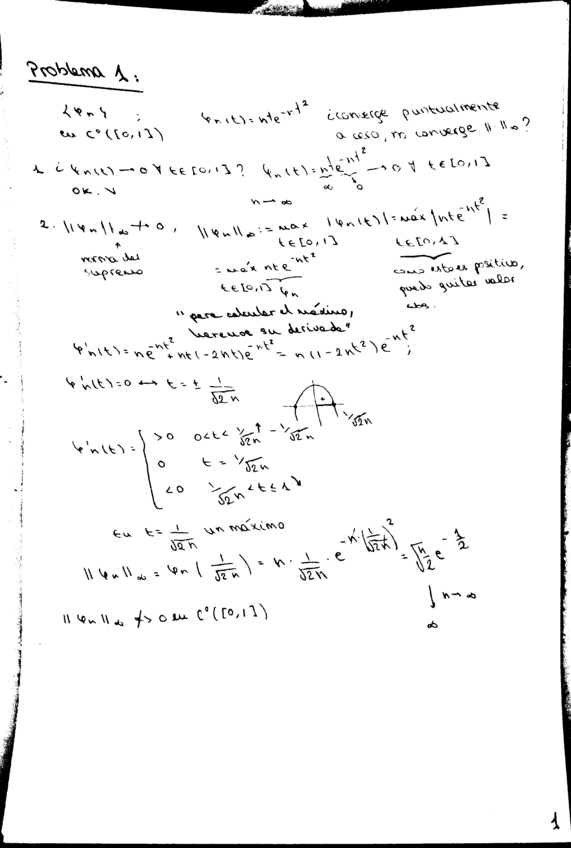 Problema 1:
{φn} ; φn(t)=nte^-nt² ¿converge puntualmente
en C⁰([0,1]) a cero, no converge || ||∞?
1. ¿ φn(t) → 0 ∀ t∈[0,1]? φn(t)=nte^-nt² → 0 ∀ t∈[0,1]
∞ 0
OK. ✓ n→∞
2. ||φn||∞ ↛ 0, ||φn||∞ := max |φn(t)| = máx |nte^-nt²| =
t∈[0,1] t∈[0,1]
↑
norma del
supremo
= máx nte^-nt²
t∈[0,1] φn
como esto es positivo,
puedo quitar valor
abs.
"para calcular el máximo,
haremos su derivada"
φ'n(t) = ne^-nt² + nt(-2nt)e^-nt² = n(1-2nt²)e^-nt² ;
φ'n(t)=0 ↔ t = ± 1/√2n
+
-1/√2n 1/√2n
φ'n(t) = { >0 0<t<1/√2n ↑
0 t = 1/√2n
<0 1/√2n <t≤1 ↘
En t = 1/√2n un máximo
||φn||∞ = φn(1/√2n) = n · 1/√2n · e^-n(1/√2n)² = √n/2 e^-1/2
↓ n→∞
∞
||φn||∞ ↛ 0 en C⁰([0,1])
1